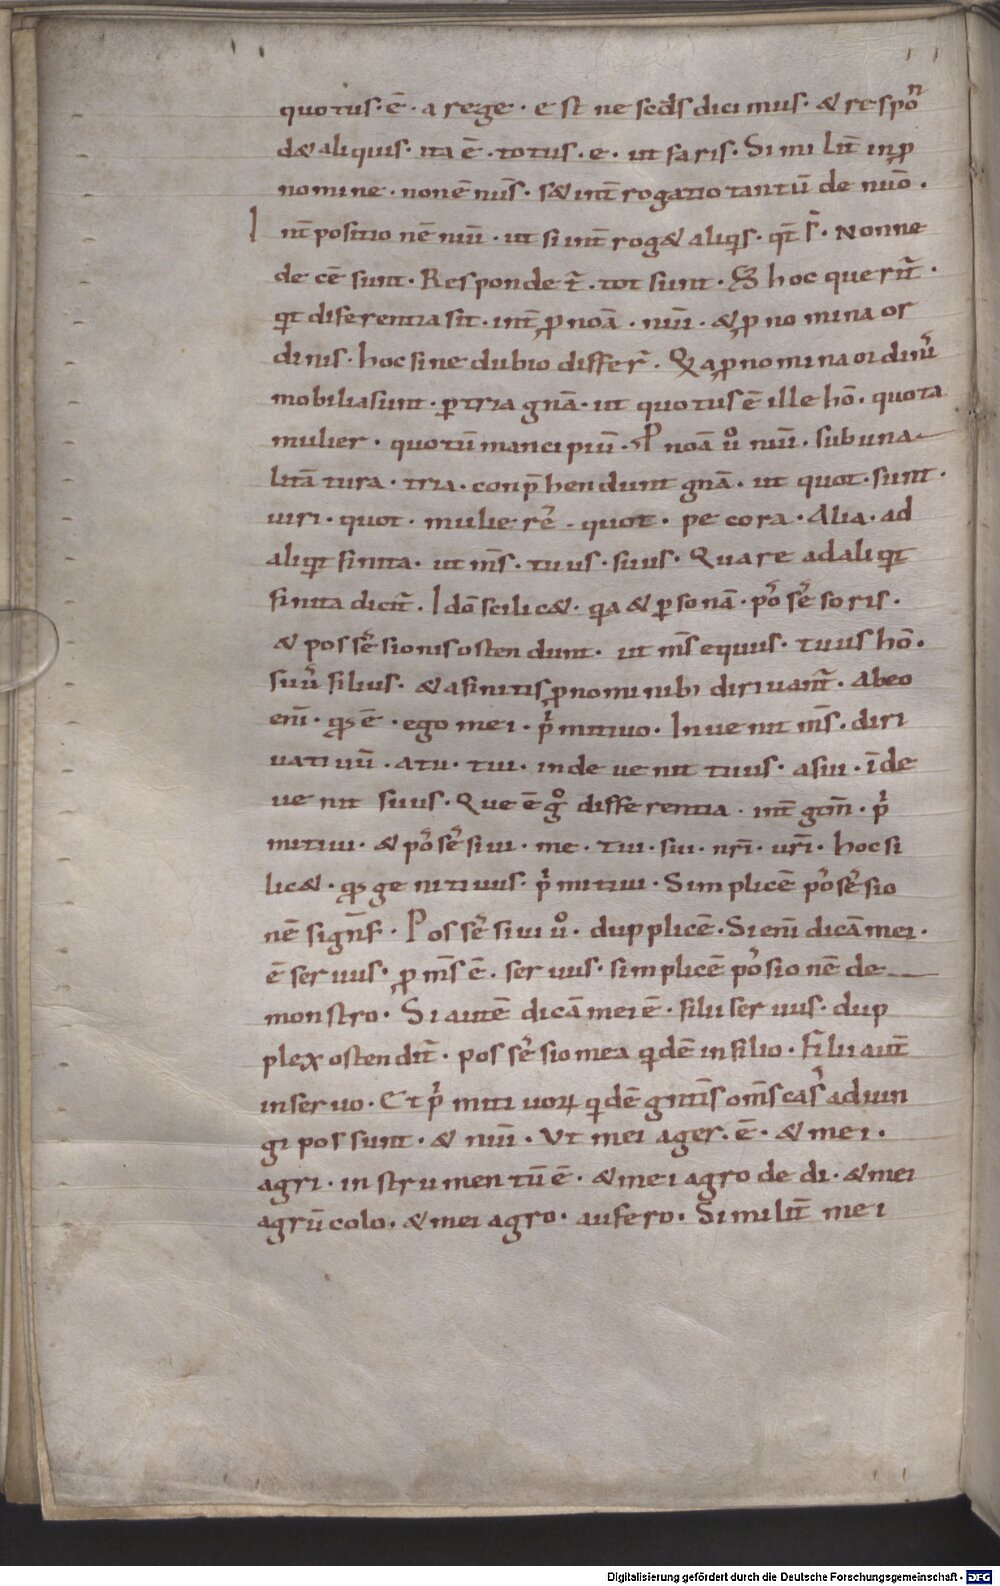 quotus· ē· a rege· est ne scds dicimus· & respoⁿ
d& aliquis· ita ē· totus· e· ut faris· Similit̄ in p
nomine· non ē nūs· s& int̄rogatio tantū de nūo·
Int̄positio nē nūi· ut si int̄rog& aliqis· qt̄ s̄· Nonne
decē sunt· Respondet̄· tot sunt· S& hoc querit̄·
qt diferentia sit· int̄ pnoā· nūi· & pnomina or
dinis· hoc sine dubio differt̄· Qa pnomina ordinū
mobilia sunt· p tria gnā· ut quotus ē ille hō· quota
mulier· quotū mancipiū· Pnoā ū nūi· sub una
litātura· tria· conp̄hendunt gnā· ut quot· sunt·
uiri· quot· mulierē· quot· pecora· Alia· ad
aliqt finita· ut m̄s· tuus· suus· Quare ad aliqt
finita dicit̄· Idō scilic&· qa & psonā· posēsoris·
& possēsionis ostendunt· ut m̄s equus· tuus hō·
suus filius· & a finitis pnominibꝫ dirivant̄· Abeo
eni· qs ē· ego mei· p̄mitiuo· Inuenit m̄s· diri
uatiuū· atu· tui· inde uenit tuus· a sui· īde
uenit suus· Que ē gº differentia· int̄ gōn· p̄
mitiui· & posēsiui· me· tui· sui· nr̄i· ur̄i· hoc si
lic&· qs genitiuus· p̄mitiui· Simplicē posēsio
nē signf̄· Possēsiui uº· dupplicē· Si eni dicā mei·
ē seruus· p m̄s ē· seruus· simplicē posionē de
monstro· Si autē dicā mei ē· filii seruus· dup
plex ostendit̄· possēsio mea qidē in filio· Filii aut̄
in seruo· Et p̄mitiuoꝝ qidē gnt̄is om̄s cas adiun
gi possunt· & nūi· Ut mei ager· ē· & mei·
agri· instrumentū ē· & mei agro dedi· & mei
agrū colo· & mei agro· aufero· Similit̄ mei
Digitalisierung gefördert durch die Deutsche Forschungsgemeinschaft - DFG